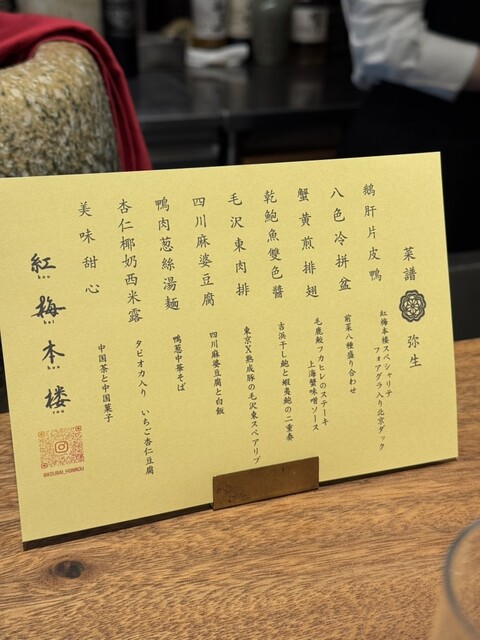 菜譜 弥生
鵝肝片皮鴨
紅梅本楼スペシャリテ
フォアグラ入り北京ダック
八色冷拼盆
前菜八種盛り合わせ
蟹黄煎排翅
毛鹿鮫フカヒレのステーキ
上海蟹味噌ソース
乾鮑魚雙色醬
吉浜干し鮑と蝦夷鮑の二重奏
毛沢東肉排
東京X熟成豚の毛沢東スペアリブ
四川麻婆豆腐
四川麻婆豆腐と白飯
鴨肉葱絲湯麺
鴨葱中華そば
杏仁椰奶西米露
タピオカ入り いちご杏仁豆腐
美味甜心
中国茶と中国菓子
紅梅本楼
kou
bai
hon
rou
@KOUBAI_HONROU